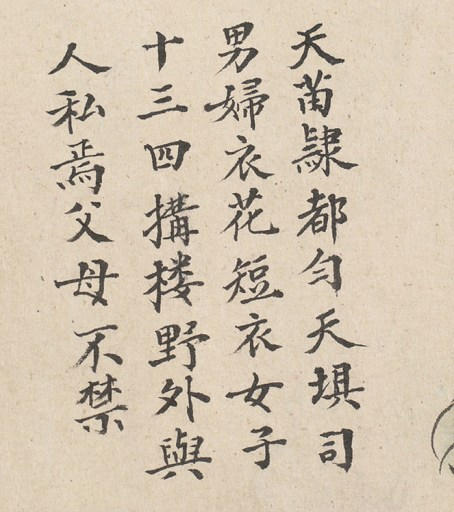 天苗隸都匀天壩司
男婦衣花短衣女子
十三四搆楼野外與
人私焉父母不禁